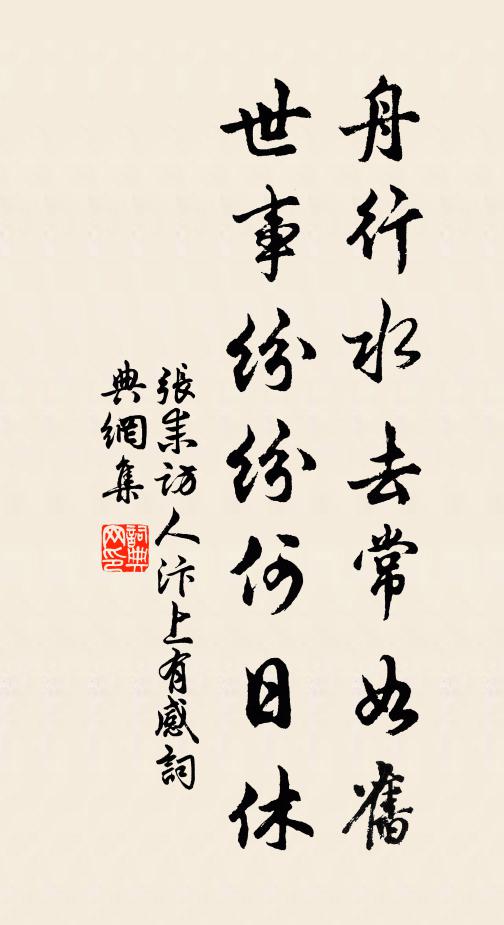 舟行水去常如舊
世事紛紛何日休
張耒訪人汴上有感詞
典網集
詞典
网印